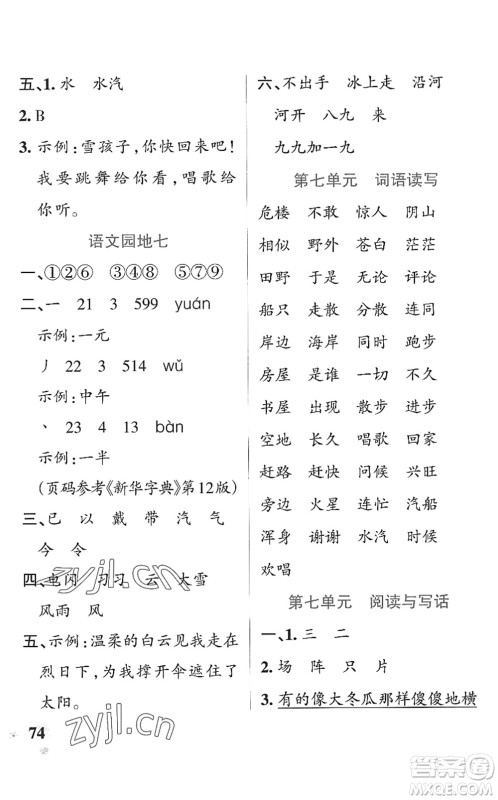 五、1. 水 水汽
2. B
3. 示例：雪孩子，你快回来吧！
我要跳舞给你看，唱歌给
你听。
语文园地七
一、①②⑥ ③④⑧ ⑤⑦⑨
二、一 21 3 599 yuán
示例：一元
丿 22 3 514 wǔ
示例：中午
丶 23 4 13 bàn
示例：一半
(页码参考《新华字典》第12版)
三、已 以 戴 带 汽 气
今 令
四、电闪 习习 云 大雪
风雨 风
五、示例：温柔的白云看见我在
烈日下，为我撑开伞遮住了
太阳。
74
zyjl.cn
zyjl.cn
六、不出手 冰上走 沿河
河开 八九 来
九九加一九
第七单元 词语读写
危楼 不敢 惊人 阴山
相似 野外 苍白 茫茫
田野 于是 无论 评论
船只 走散 分散 连同
岸边 海岸 同时 跑步
房屋 是谁 一切 不久
书屋 出现 散步 散坐
空地 长久 唱歌 回家
赶路 赶快 问候 兴旺
旁边 兴风 连忙 汽船
浑身 谢谢 水汽 时候
欢唱
第七单元 阅读与写话
一、1. 三 二
2. 场 阵 只 片
3. 有的像大冬瓜那样傻傻地横